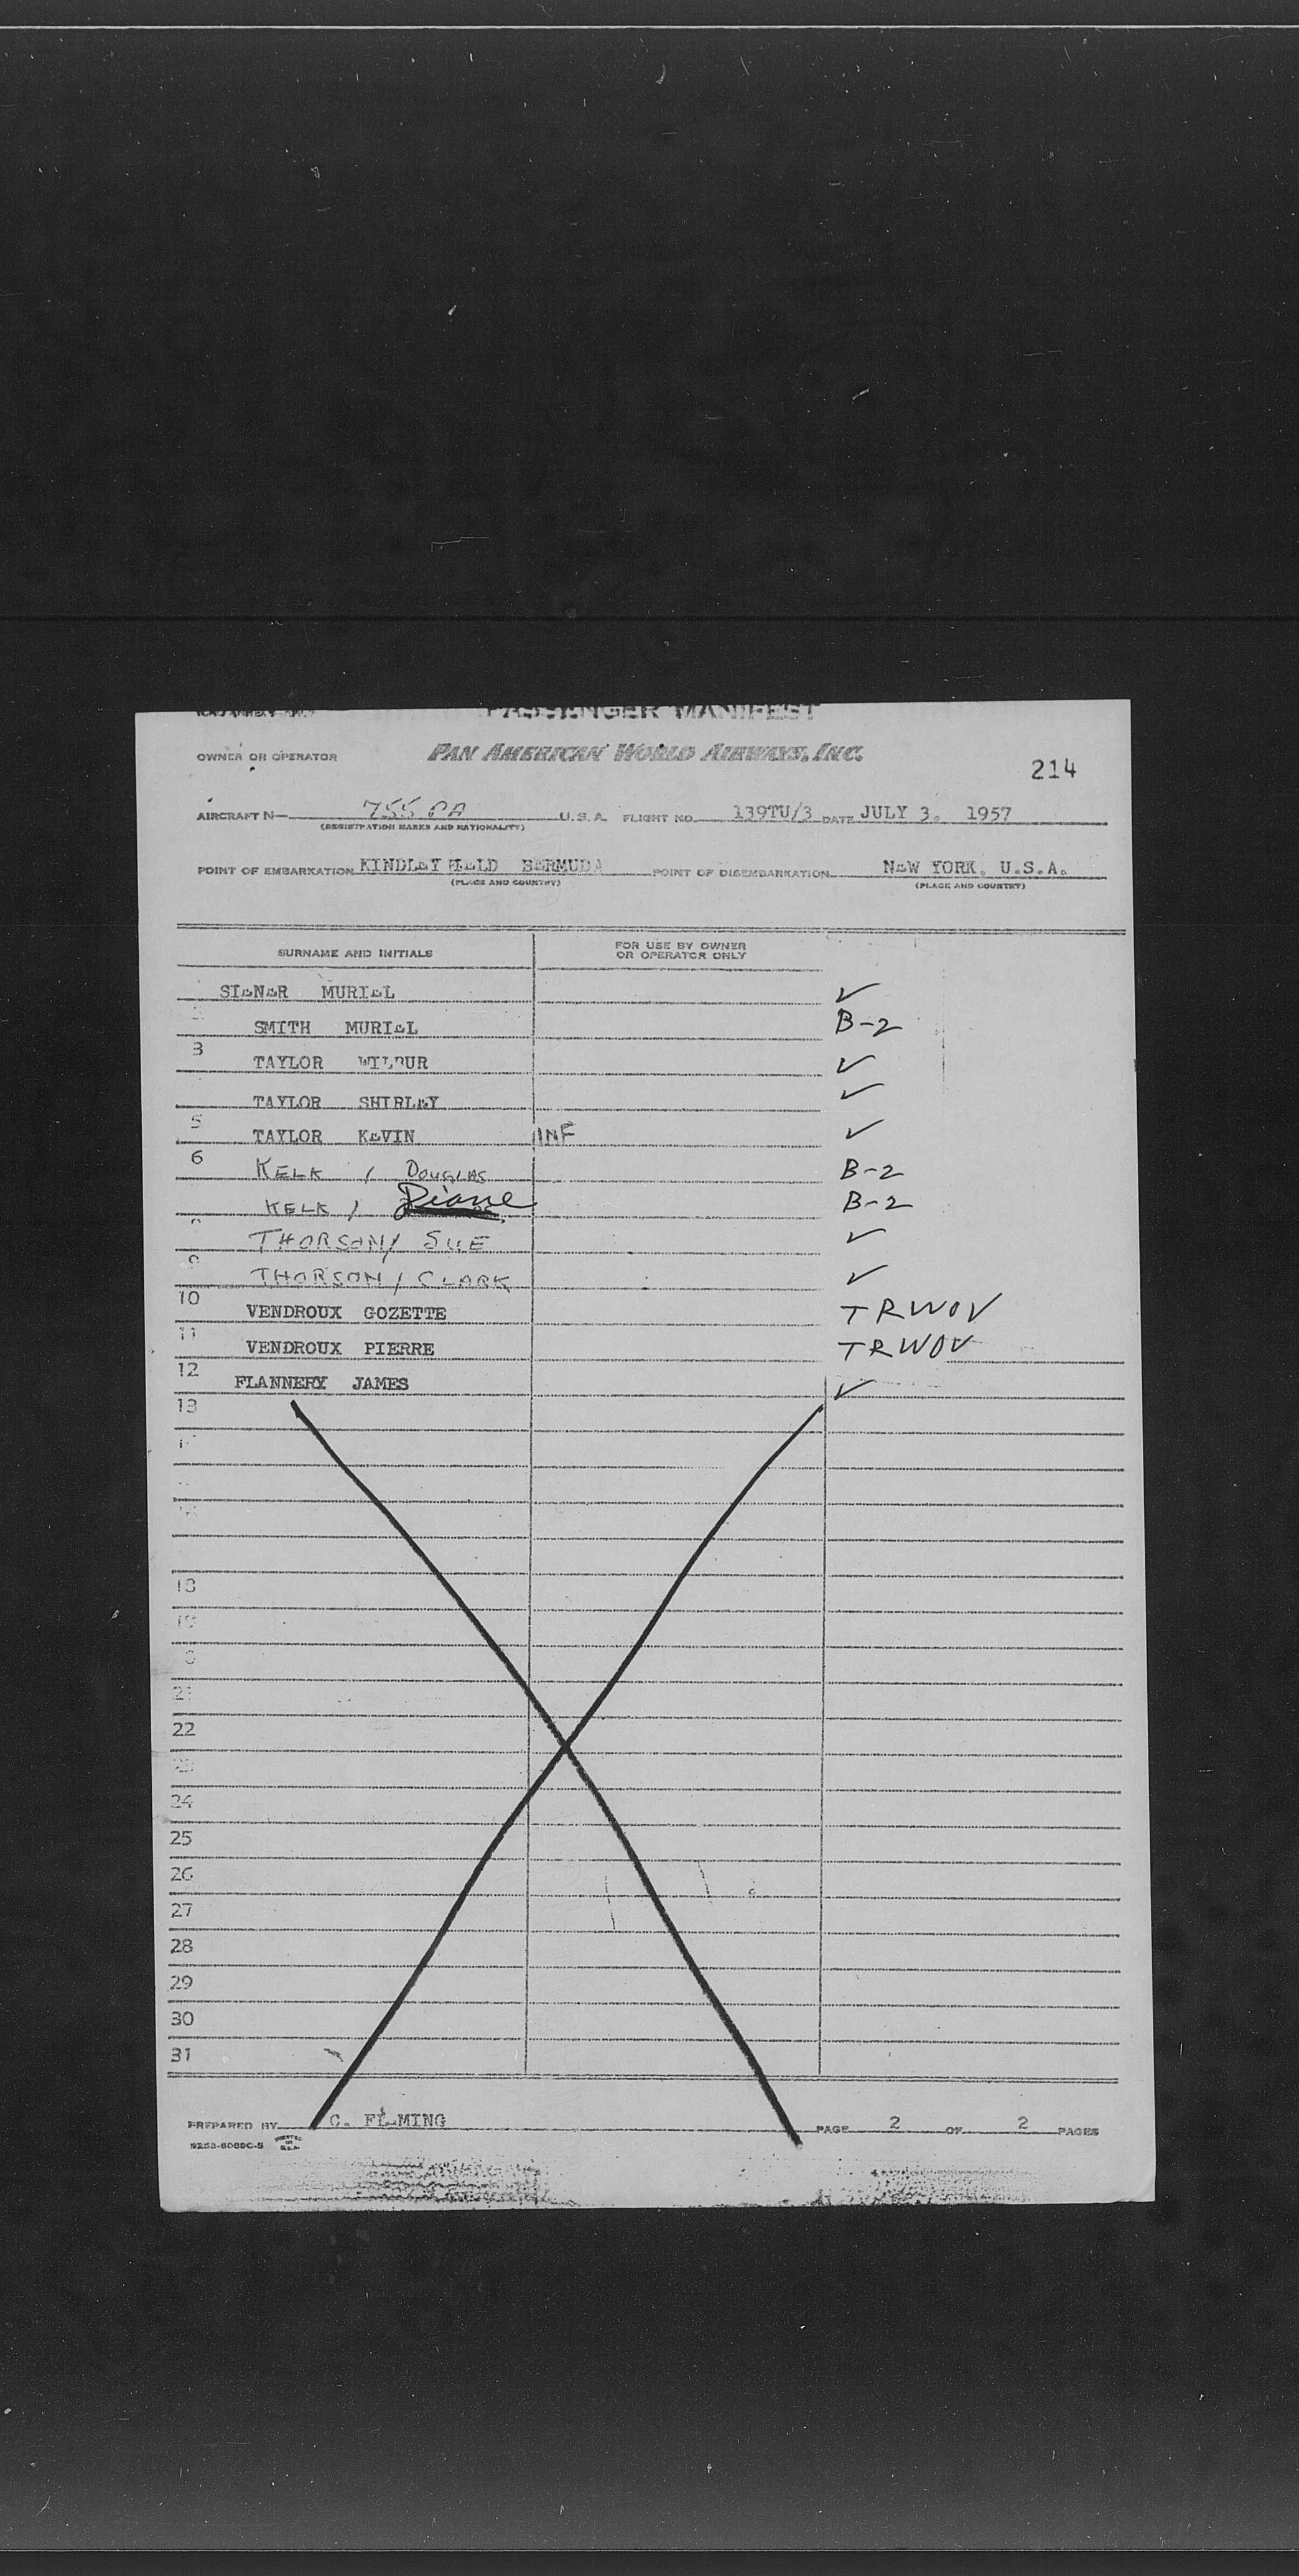 PASSENGER MANIFEST
OWNER OR OPERATOR PAN AMERICAN WORLD AIRWAYS, INC.
214
AIRCRAFT N— 755 PA U.S.A. FLIGHT NO. 139TU/3 DATE JULY 3. 1957
(REGISTRATION MARKS AND NATIONALITY)
POINT OF EMBARKATION KINDLEY FIELD BERMUDA POINT OF DISEMBARKATION NEW YORK. U.S.A.
(PLACE AND COUNTRY) (PLACE AND COUNTRY)
SURNAME AND INITIALS FOR USE BY OWNER OR OPERATOR ONLY
SIENER MURIEL ✓
SMITH MURIEL B-2
3 TAYLOR WILBUR ✓
TAYLOR SHIRLEY ✓
5 TAYLOR KEVIN INF ✓
6 KELK / DOUGLAS B-2
KELK / Diane B-2
THORSON/ SUE ✓
9 THORSON / CLARK ✓
10 VENDROUX GOZETTE TRWOV
11 VENDROUX PIERRE TRWOV
12 FLANNERY JAMES ✓
13
18
19
21
22
23
24
25
26
27
28
29
30
31
PREPARED BY C. FLEMING PAGE 2 OF 2 PAGES
PRINTED IN U.S.A.